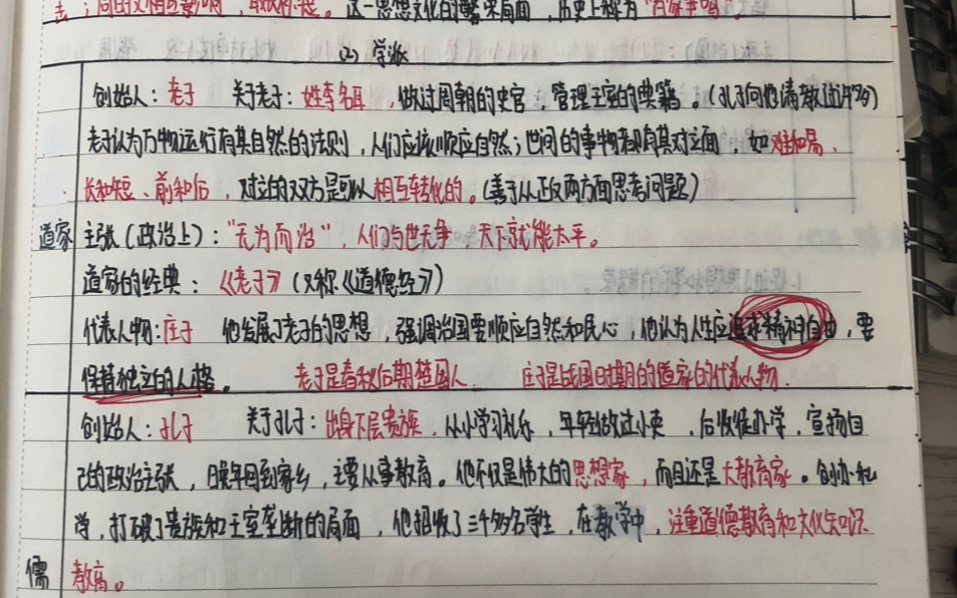 同时又相互影响，取长补短。这一思想文化的繁荣局面，历史上称为"百家争鸣"。
(2) 学派
创始人：老子 关于老子：姓李名耳，做过周朝的史官，管理王室的典籍。(孔子向他请教过学问)
老子认为万物运行有其自然的法则，人们应该顺应自然；世间的事物都有其对立面，如难和易、
长和短、前和后，对立的双方是可以相互转化的。(善于从正反两方面思考问题)
道家 主张(政治上)："无为而治"，人们与世无争 天下就能太平。
道家的经典：《老子》(又称《道德经》)
代表人物:庄子 他发展了老子的思想，强调治国要顺应自然和民心，他认为人生应追求精神自由，要
保持独立的人格。 老子是春秋后期楚国人 庄子是战国时期的道家的代表人物.
创始人：孔子 关于孔子：出身下层贵族，从小学习礼乐，年轻做过小吏，后收徒办学，宣扬自
己的政治主张，晚年回到家乡，主要从事教育。他不仅是伟大的思想家，而且还是大教育家。创办私
学，打破了贵族和王室垄断的局面，他招收了三千多名学生，在教学中，注重道德教育和文化知识
儒 教育。